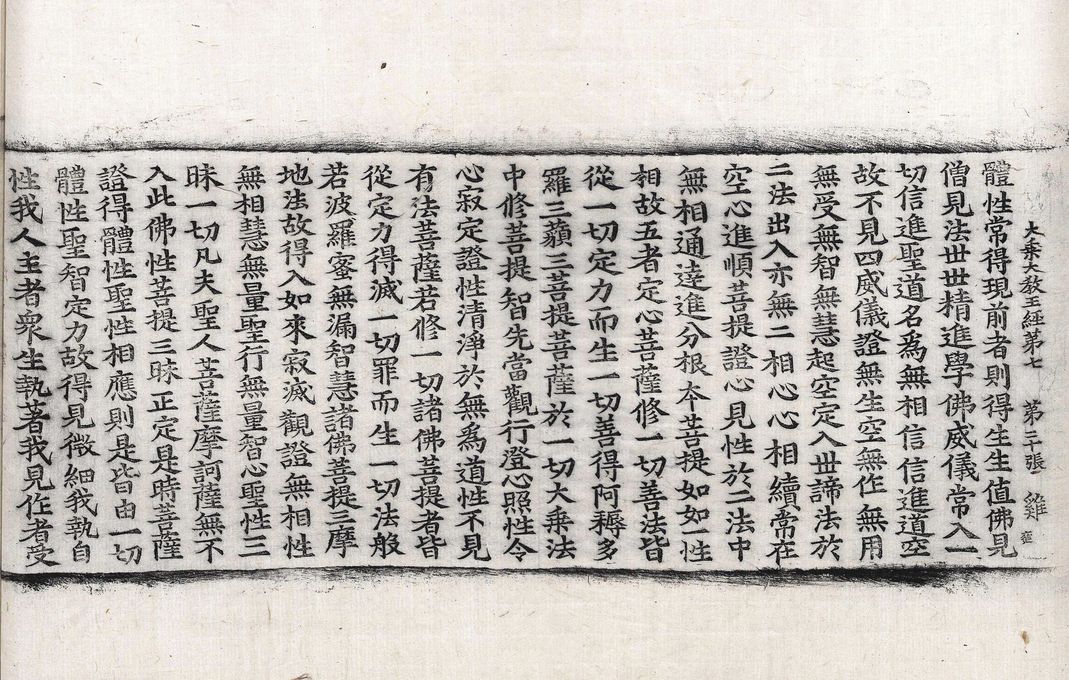 大乘大教王經第七 第三張 雞
體性常得現前者則得生生值佛見
僧見法丗丗精進學佛威儀常入一
切信進聖道名爲無相信信進道空
故不見四威儀證無生空無作無用
無受無智無慧起空定入丗諦法於
二法出入亦無二相心心相續常在
空心進順菩提證心見性於二法中
無相通達進分根本菩提如如一性
相故五者定心菩薩修一切善法皆
從一切定力而生一切善得阿耨多
羅三藐三菩提菩薩於一切大乘法
中修菩提智先當觀行澄心照性令
心寂定證性清淨於無爲道性不見
有法菩薩若修一切諸佛菩提者皆
從定力得滅一切罪而生一切法般
若波羅蜜無漏智慧諸佛菩提三摩
地法故得入如來寂滅觀證無相性
無相慧無量聖行無量智心聖性三
昧一切凡夫聖人菩薩摩訶薩無不
入此佛性菩提三昧正定是時菩薩
證得體性聖性相應則是皆由一切
體性聖智定力故得見微細我執自
性我人主者衆生執著我見作者受